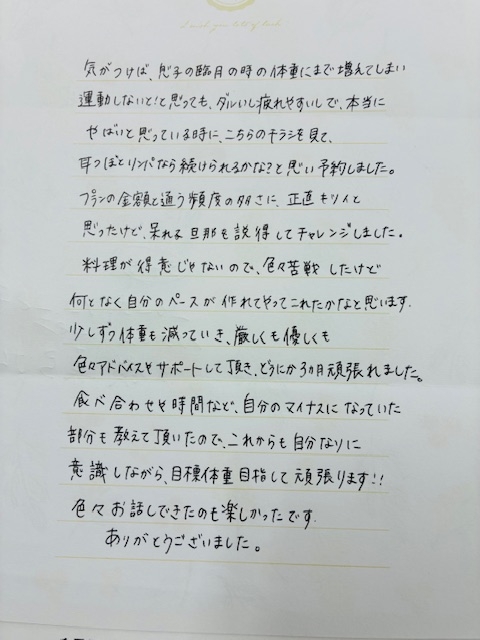 気がつけば、息子の臨月の時の体重にまで増えてしまい
運動しないと!と思っても、ダルいし疲れやすいしで、本当に
やばいと思っている時に、こちらのチラシを見て、
耳つぼとリンパなら続けられるかな?と思い予約しました。
プランの金額と通う頻度の多さに、正直ムリィと
思ったけど、呆れる旦那も説得してチャレンジしました。
料理が得意じゃないので、色々苦戦したけど
何となく自分のペースが作れてやってこれたかなと思います.
少しずつ体重も減っていき、厳しくも優しくも
色々アドバイスやサポートして頂き、どうにか3カ月頑張れました。
食べ合わせや時間など、自分のマイナスになっていた
部分も教えて頂いたので、これからも自分なりに
意識しながら、目標体重目指して頑張ります!!
色々お話しできたのも楽しかったです.
ありがとうございました。